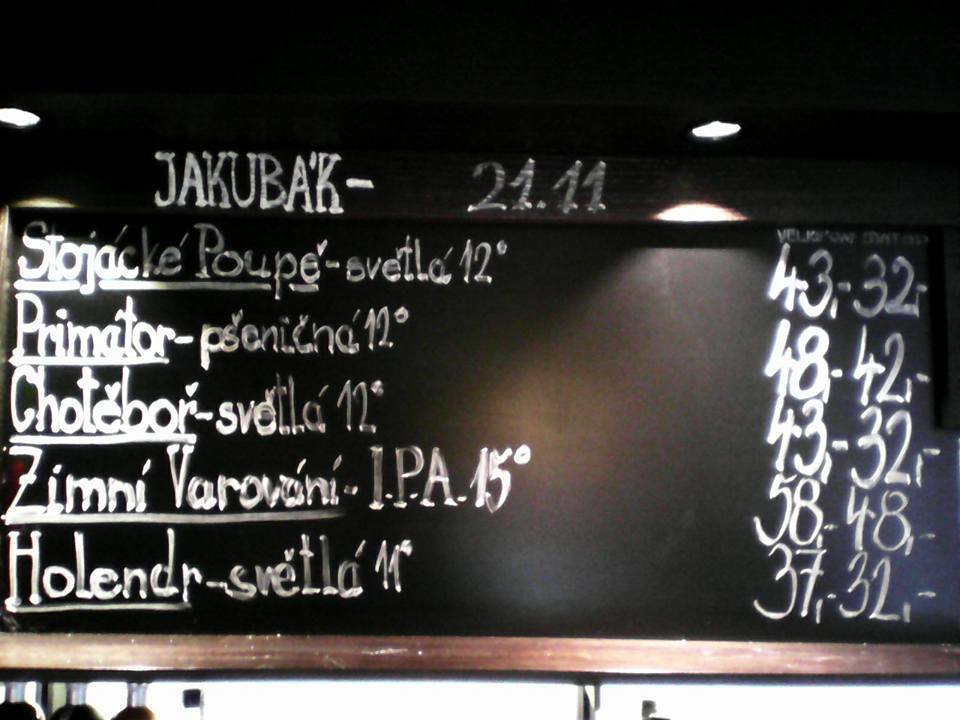 JAKUBÁK- 21.11
Stojácké Poupě-světlá 12° 43,- 32,-
Primátor- pšeničná 12° 48,- 42,-
Chotěboř-světlá 12° 43,- 32,-
Zimní Varování- I.P.A. 15° 58,- 48,-
Holendr-světlá 11° 37,- 32,-